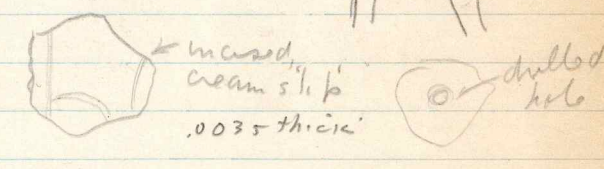 incised,
cream slip
.0035 thick
drilled
hole